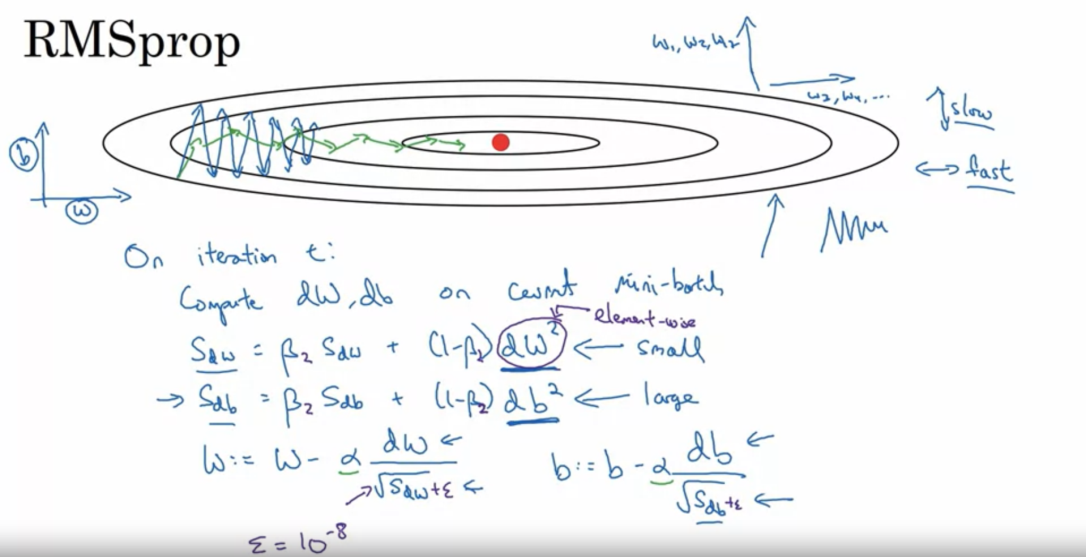 RMSprop
w₁, w₂, w₂
w₃, w₄, ...
↕ slow
↔ fast
b
w
On iteration t:
Compute dW, db on current mini-batch
element-wise
S_dw = β₂ S_dw + (1-β₂) dW² ← small
→ S_db = β₂ S_db + (1-β₂) db² ← large
w := w - α dw / √S_dw + ε ←
b := b - α db / √S_db + ε ←
ε = 10⁻⁸